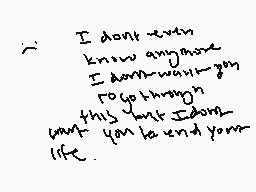 :(
I dont even
know anymore
I dont want you
to go through
this but I dont
want you to end your
life.